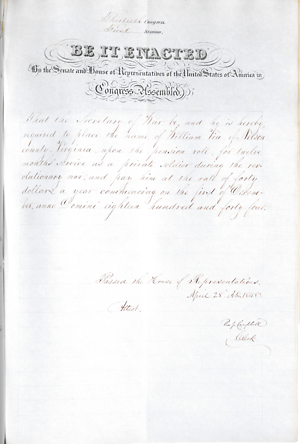 Congress
First Session.
BE IT ENACTED
By the Senate and House of Representatives of the United States of America in
Congress Assembled
That the Secretary of War be, and he is hereby
required to place the name of William Via of Nelson
county, Virginia upon the pension roll, for twelve
months service as a private soldier during the rev
olutionary war; and pay him at the rate of forty
dollars a year commencing on the first of
anno Domini eighteen hundred and forty four.
Passed the House of Representatives,
April 28
Attest.
Clerk